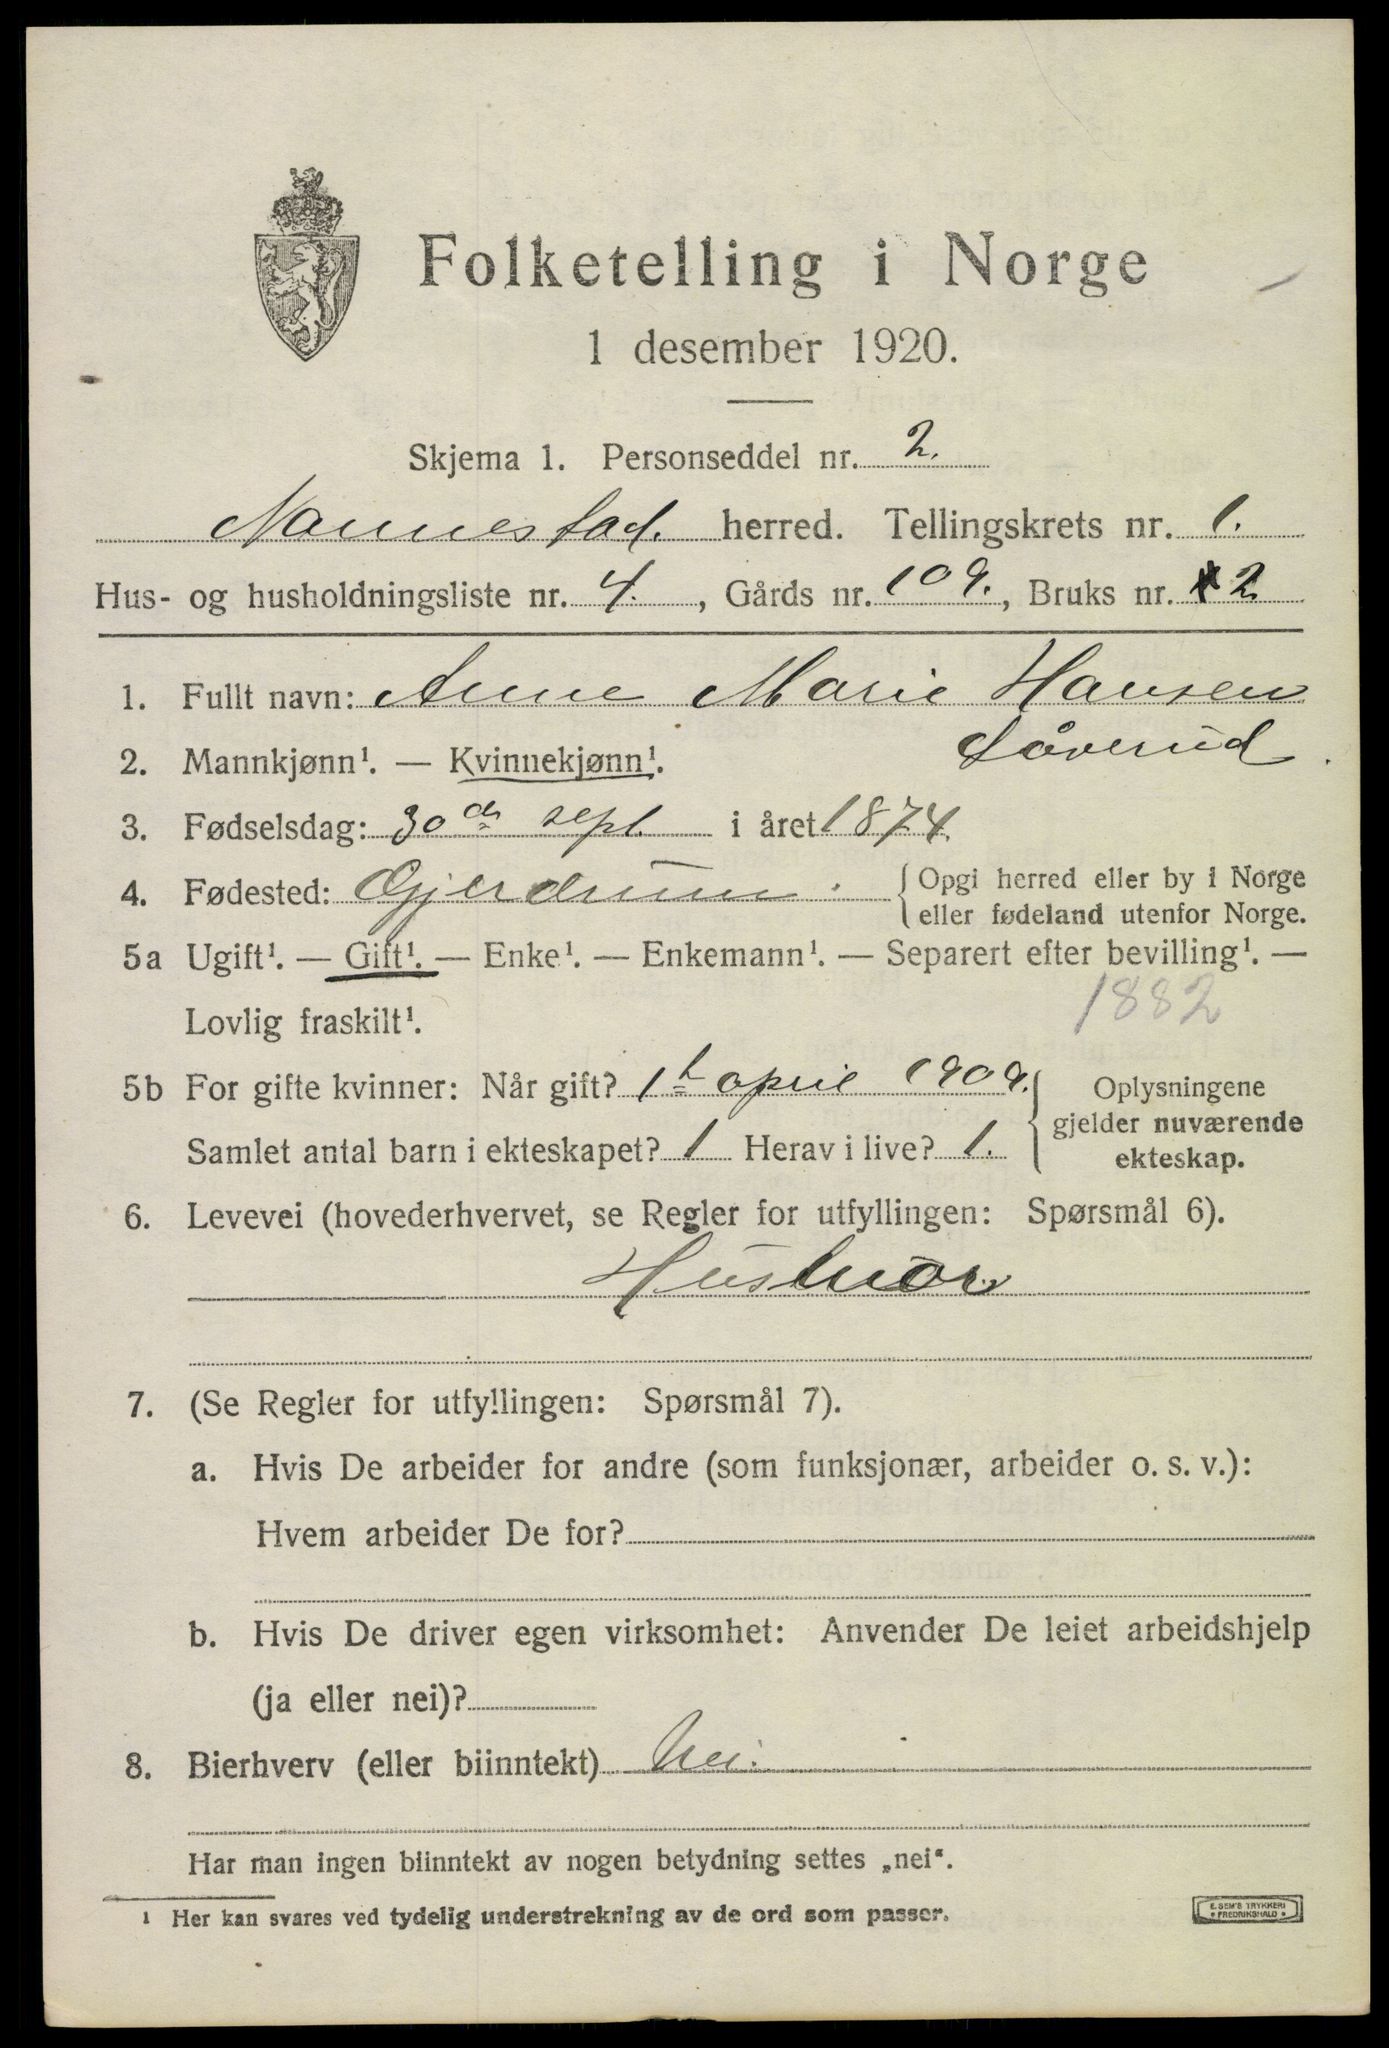 Folketelling i Norge
1 desember 1920.
Skjema 1. Personseddel nr. 2.
Nannestad. herred. Tellingskrets nr. 1.
Hus- og husholdningsliste nr. 4. , Gårds nr. 109. , Bruks nr. 2
1. Fullt navn: Anne Marie Hansen
Låverud
2. Mannkjønn¹. — Kvinnekjønn¹.
3. Fødselsdag: 30 sept. i året 1874.
4. Fødested: Gjerdrum. Opgi herred eller by i Norge
eller fødeland utenfor Norge.
5a Ugift¹. — Gift¹. — Enke¹. — Enkemann¹. — Separert efter bevilling¹. —
1882
Lovlig fraskilt¹.
5b For gifte kvinner: Når gift? 1 april 1909. Oplysningene
gjelder nuværende
Samlet antal barn i ekteskapet? 1 Herav i live? 1. ekteskap.
6. Levevei (hovederhvervet, se Regler for utfyllingen: Spørsmål 6).
Husmor
7. (Se Regler for utfyllingen: Spørsmål 7).
a. Hvis De arbeider for andre (som funksjonær, arbeider o. s. v.):
Hvem arbeider De for?
b. Hvis De driver egen virksomhet: Anvender De leiet arbeidshjelp
(ja eller nei)?
8. Bierhverv (eller biinntekt) Nei.
Har man ingen biinntekt av nogen betydning settes „nei".
¹ Her kan svares ved tydelig understrekning av de ord som passer.
E. SEM'S TRYKKERI
• FREDRIKSHALD •